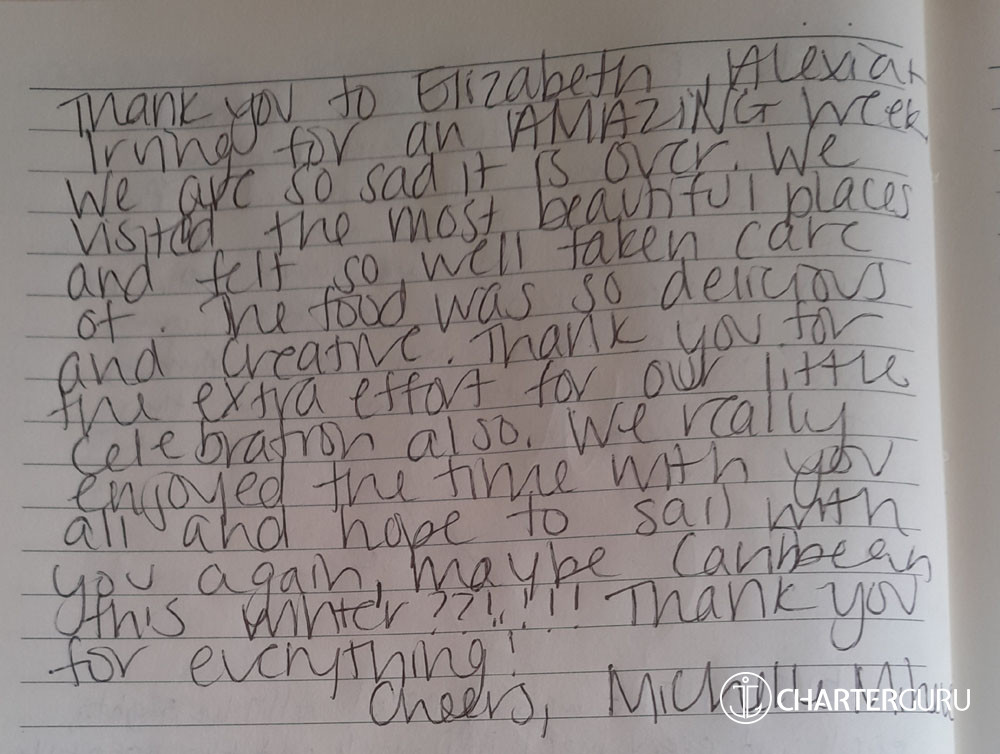 Thank you to Elizabeth, Alexia +
Irving for an AMAZING week
We are so sad it is over. We
visited the most beautiful places
and felt so well taken care
of. The food was so delicious
and creative. Thank you for
the extra effort for our little
celebration also. We really
enjoyed the time with you
all and hope to sail with
you again, maybe Caribbean
this winter??!!!! Thank you
for everything!
Cheers,
CHARTERGURU